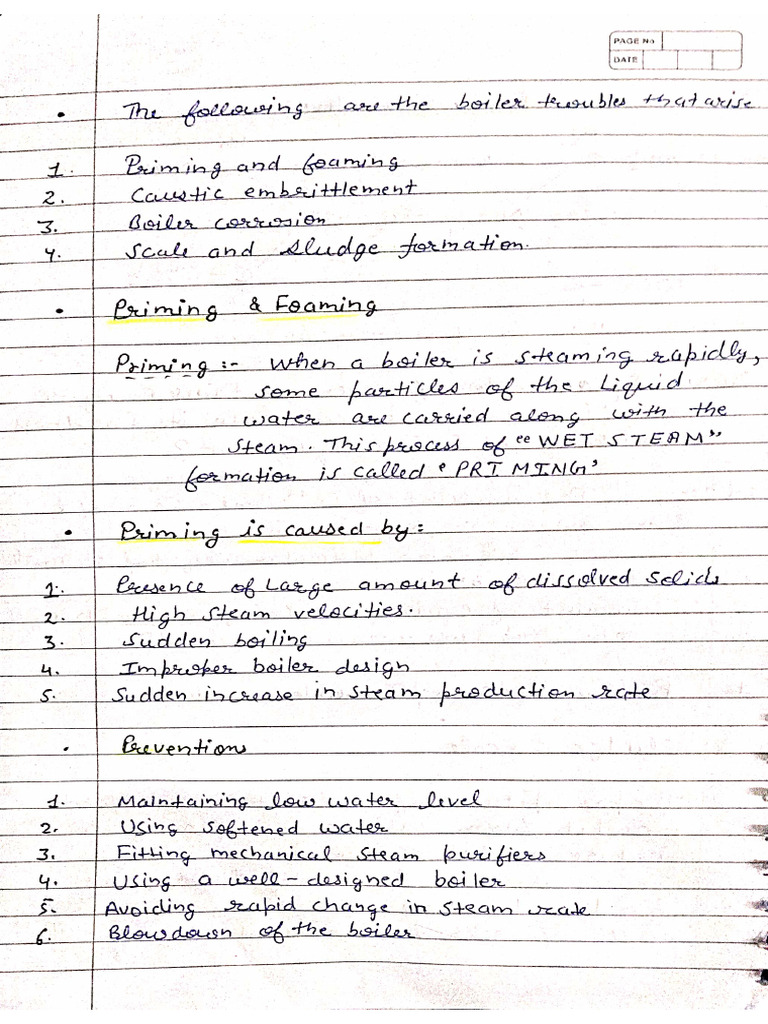 PAGE No
DATE
• The following are the boiler troubles that arise
1. Priming and foaming
2. Caustic embrittlement
3. Boiler corrosion
4. Scale and sludge formation.
• Priming & Foaming
Priming :- When a boiler is steaming rapidly,
some particles of the liquid
water are carried along with the
steam. This process of "WET STEAM"
formation is called 'PRIMING'
• Priming is caused by:
1. Presence of large amount of dissolved solids
2. High steam velocities.
3. Sudden boiling
4. Improper boiler design
5. Sudden increase in steam production rate
• Prevention
1. Maintaining low water level
2. Using softened water
3. Fitting mechanical steam purifiers
4. Using a well-designed boiler
5. Avoiding rapid change in steam rate
6. Blowdown of the boiler